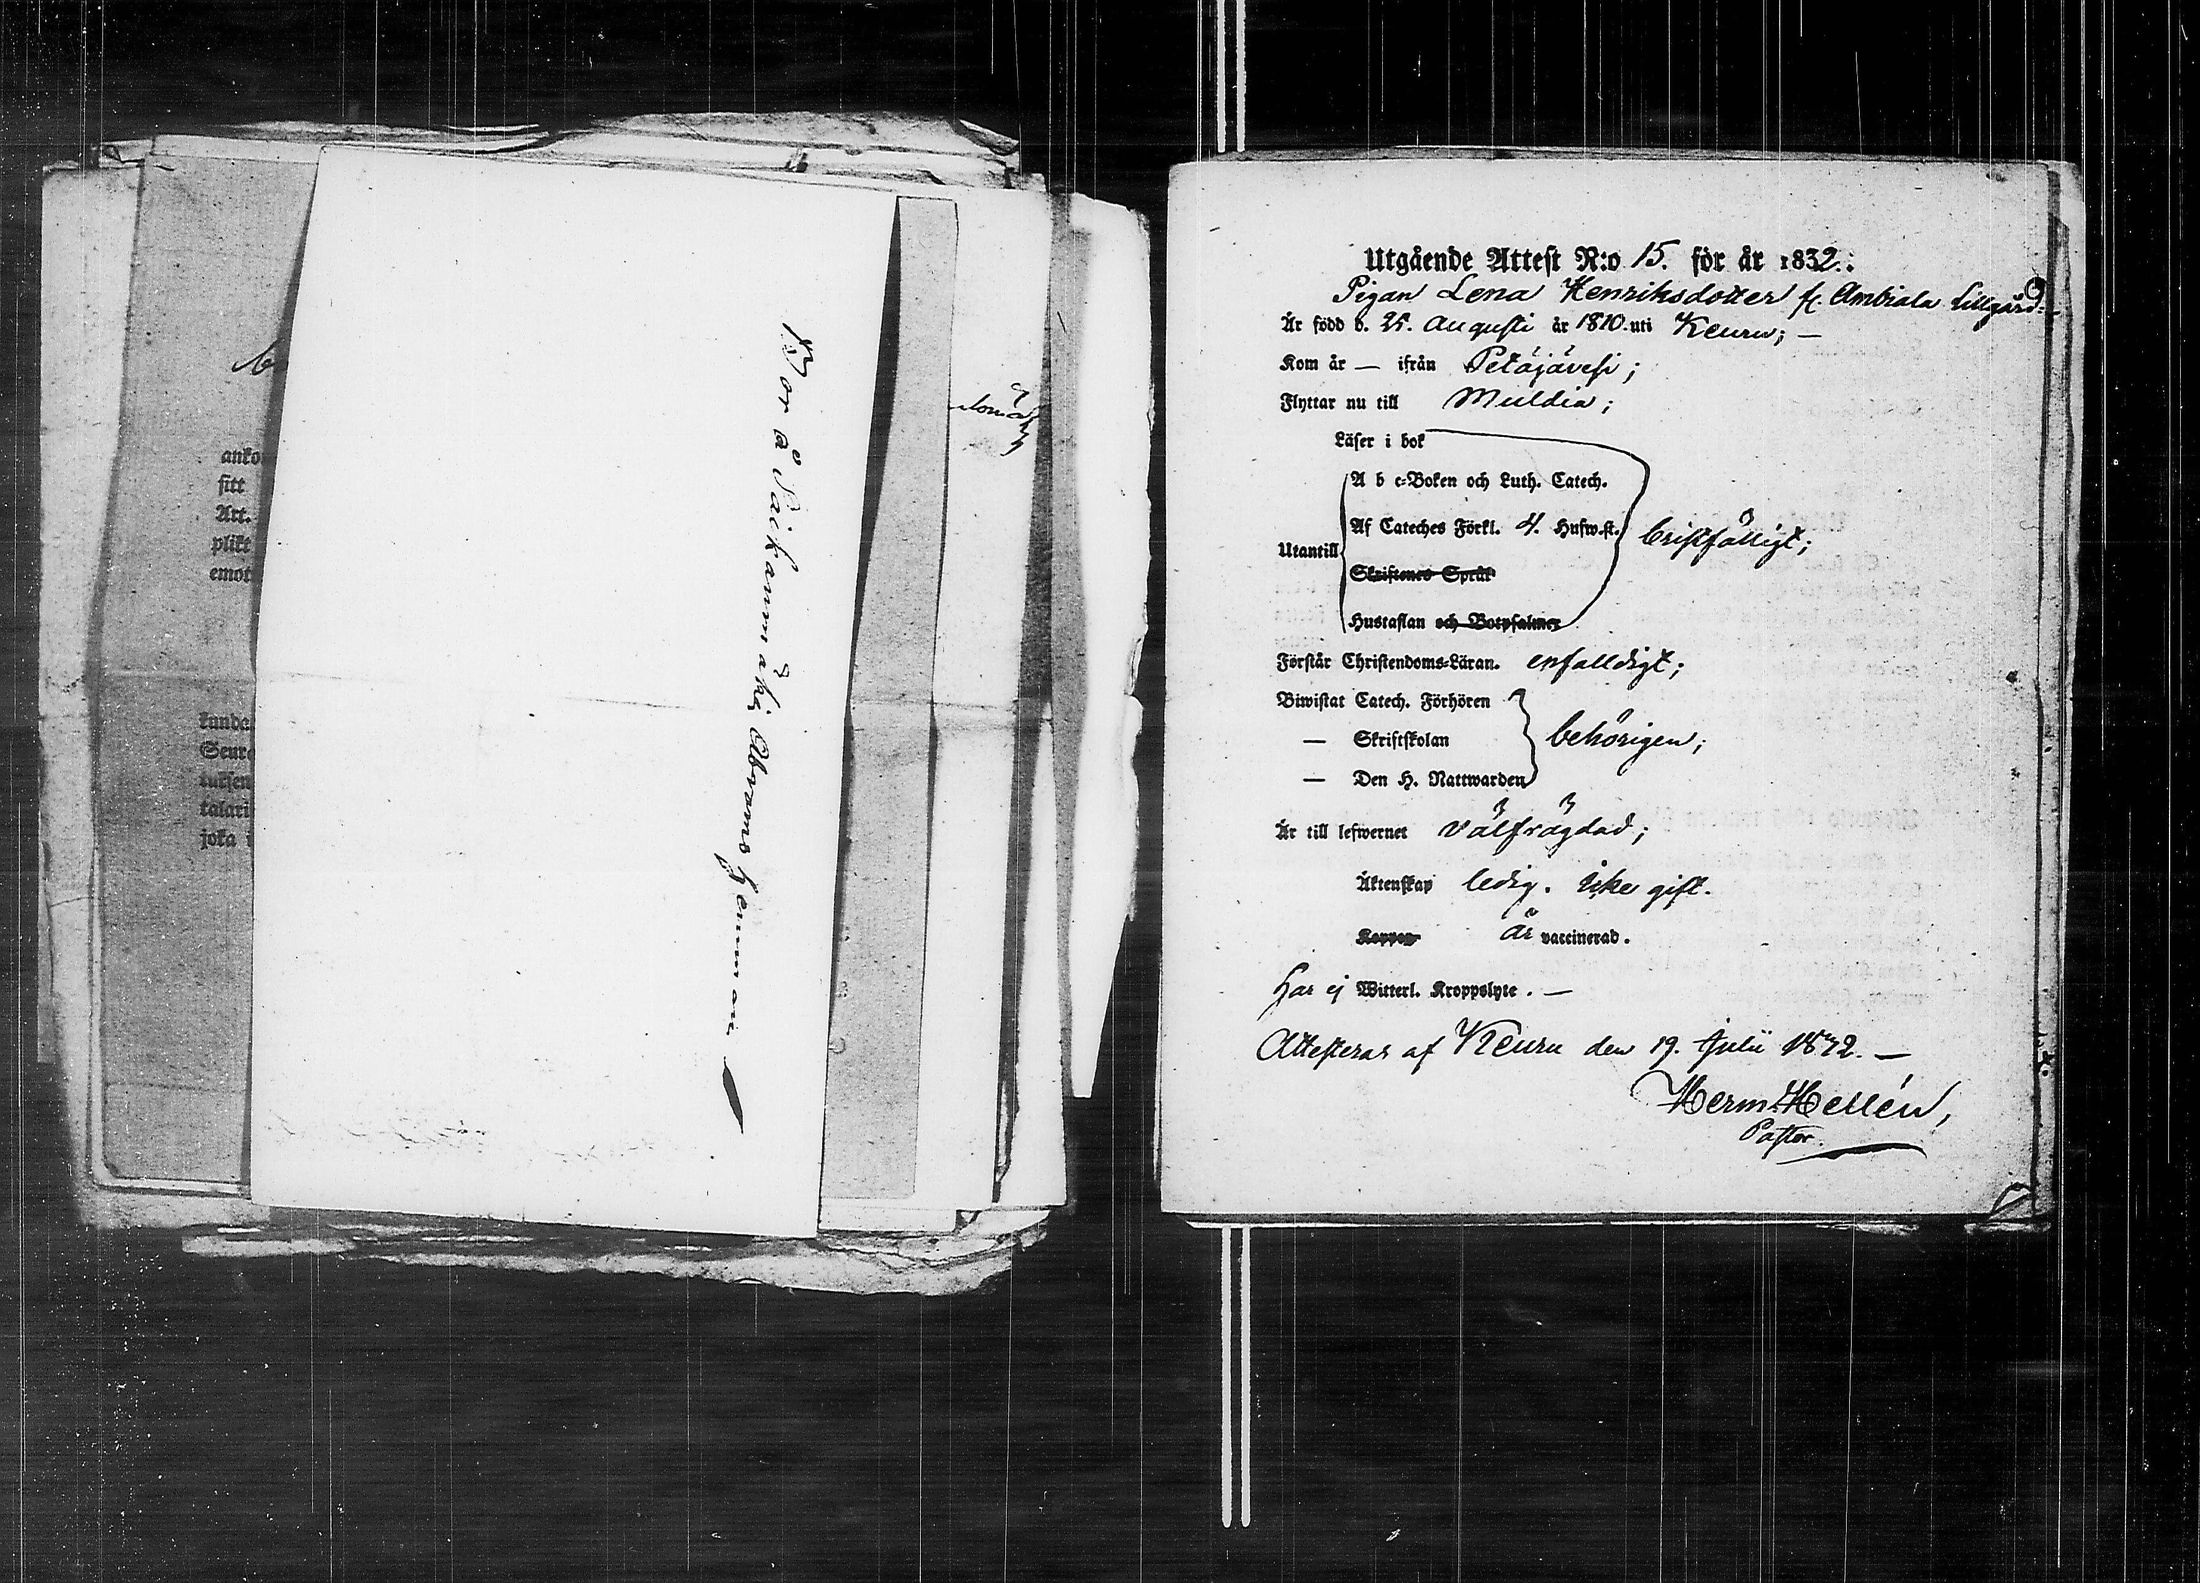 Bor å Saikanmäki Abrams hemman
anko
sitt
Art.
plikt
emot
kunda
Seura
tutsen
talari
joka
Utgående Attest N:o 15. för år 1832.
Pigan Lena Henriksdotter fr. Ambiala Lillgård
Är född d. 25. Augusti år 1810. uti Keuru; —
Kom år — ifrån Petäjävesi;
Flyttar nu till Muldia;
Läser i bok
A b c-Boken och Luth. Catech.
Af Cateches Förkl. 4. Hufw.st.
Utantill bristfälligt;
Skriftenes Språk
Hustaflan och Botpsalmer
Förstår Christendoms-Läran. enfalldigt;
Biwistat Catech. Förhören
— Skriftskolan behörigen;
— Den H. Nattwarden
Är till lefwernet välfrägdad;
Äktenskap ledig. icke gift.
Koppor är vaccinerad.
Har ej Witterl. Kroppslyte. —
Attesteras af Keuru den 19. Julii 1832. —
Herm. Hellén,
Pastor.